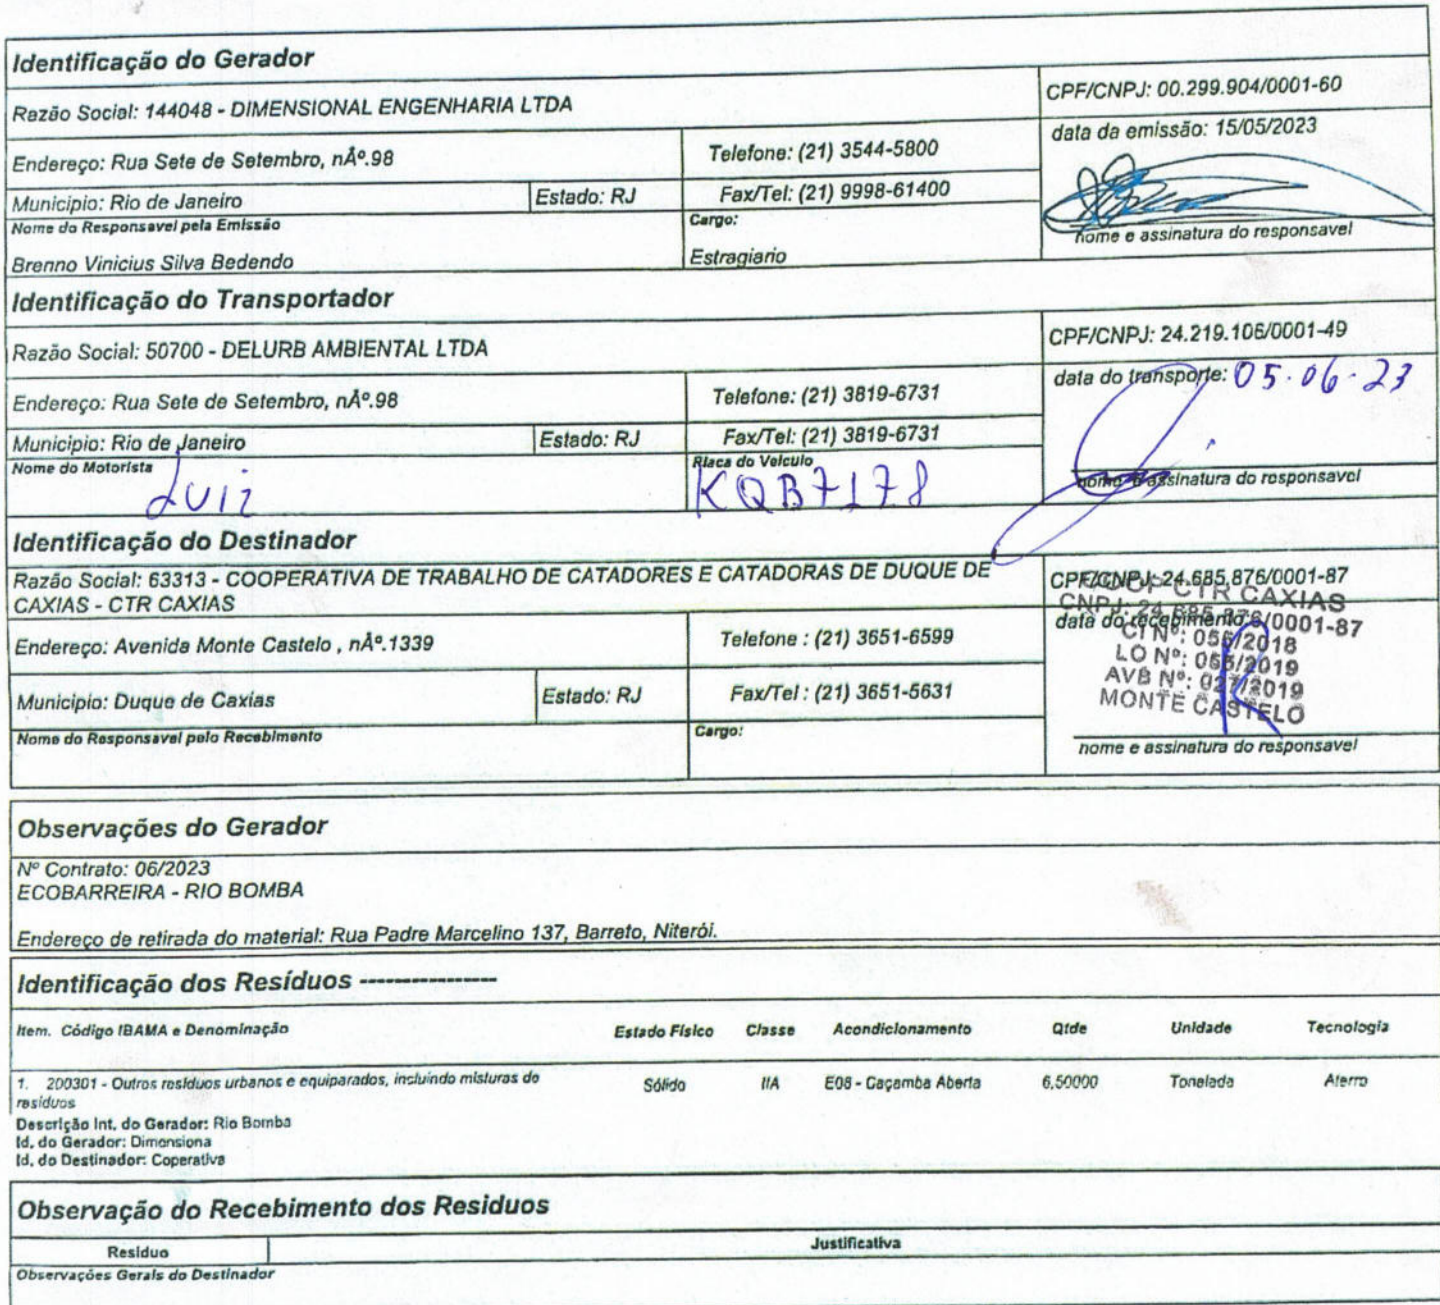 Identificação do Gerador
Razão Social: 144048 - DIMENSIONAL ENGENHARIA LTDA
CPF/CNPJ: 00.299.904/0001-60
Endereço: Rua Sete de Setembro, nÂº.98
Telefone: (21) 3544-5800
data da emissão: 15/05/2023
Municipio: Rio de Janeiro
Estado: RJ
Fax/Tel: (21) 9998-61400
Nome do Responsavel pela Emissão
Cargo:
nome e assinatura do responsavel
Brenno Vinicius Silva Bedendo
Estragiario
Identificação do Transportador
Razão Social: 50700 - DELURB AMBIENTAL LTDA
CPF/CNPJ: 24.219.106/0001-49
Endereço: Rua Sete de Setembro, nÂº.98
Telefone: (21) 3819-6731
data do transporte: 05.06.23
Municipio: Rio de Janeiro
Estado: RJ
Fax/Tel: (21) 3819-6731
Nome do Motorista
Placa do Veiculo
Luiz
KQB7178
nome e assinatura do responsavel
Identificação do Destinador
Razão Social: 63313 - COOPERATIVA DE TRABALHO DE CATADORES E CATADORAS DE DUQUE DE
CAXIAS - CTR CAXIAS
CPF/CNPJ: 24.685.876/0001-87
CTR CAXIAS
CNPJ: 24.685.876/0001-87
data do recebimento:
CI Nº: 055/2018
LO Nº: 055/2019
AVB Nº: 027/2019
MONTE CASTELO
Endereço: Avenida Monte Castelo , nÂº.1339
Telefone : (21) 3651-6599
Municipio: Duque de Caxias
Estado: RJ
Fax/Tel : (21) 3651-5631
Nome do Responsavel pelo Recebimento
Cargo:
nome e assinatura do responsavel
Observações do Gerador
Nº Contrato: 06/2023
ECOBARREIRA - RIO BOMBA
Endereço de retirada do material: Rua Padre Marcelino 137, Barreto, Niterói.
Identificação dos Resíduos ----------------
Item. Código IBAMA e Denominação Estado Físico Classe Acondicionamento Qtde Unidade Tecnologia
1. 200301 - Outros resíduos urbanos e equiparados, incluindo misturas de Sólido IIA E08 - Caçamba Aberta 6,50000 Tonelada Aterro
resíduos
Descrição Int. do Gerador: Rio Bomba
Id. do Gerador: Dimensiona
Id. do Destinador: Coperativa
Observação do Recebimento dos Residuos
Residuo Justificativa
Observações Gerais do Destinador